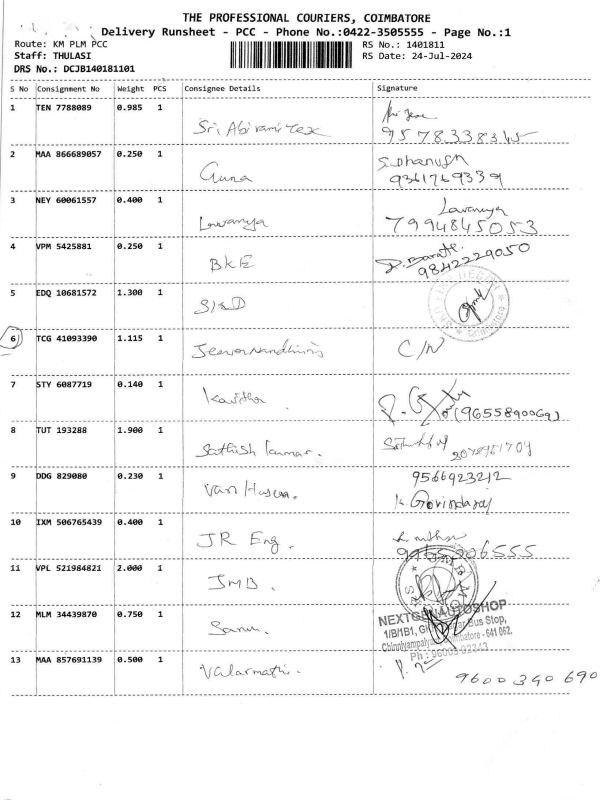 THE PROFESSIONAL COURIERS, COIMBATORE
Delivery Runsheet - PCC - Phone No.:0422-3505555 - Page No.:1
Route: KM PLM PCC RS No.: 1401811
Staff: THULASI RS Date: 24-Jul-2024
DRS No.: DCJB140181101
S No Consignment No Weight PCS Consignee Details Signature
1 TEN 7788089 0.985 1
Sri Abirami Tex 9578338345
2 MAA 866689057 0.250 1 S. Dhanush
Guna 9361769339
3 NEY 60061557 0.400 1 Lavanya
Lavanya 7994845053
4 VPM 5425881 0.250 1 Barath
BKE 9842229050
5 EDQ 10681572 1.300 1
6 TCG 41093390 1.115 1
C/N
7 STY 6087719 0.140 1
Kavitha (9655890069)
8 TUT 193288 1.900 1
Sathish kumar.
9 DDG 829080 0.230 1 9566923212
Van K. Govindaraj
10 IXM 506765439 0.400 1
JR Eng.
11 VPL 521984821 2.000 1
JMB.
12 MLM 34439870 0.750 1 NEXTGEN AUTOSHOP
1/B/1B1, Bus Stop,
Coimbatore - 641 062.
13 MAA 857691139 0.500 1
Valarmathi. 9600340690